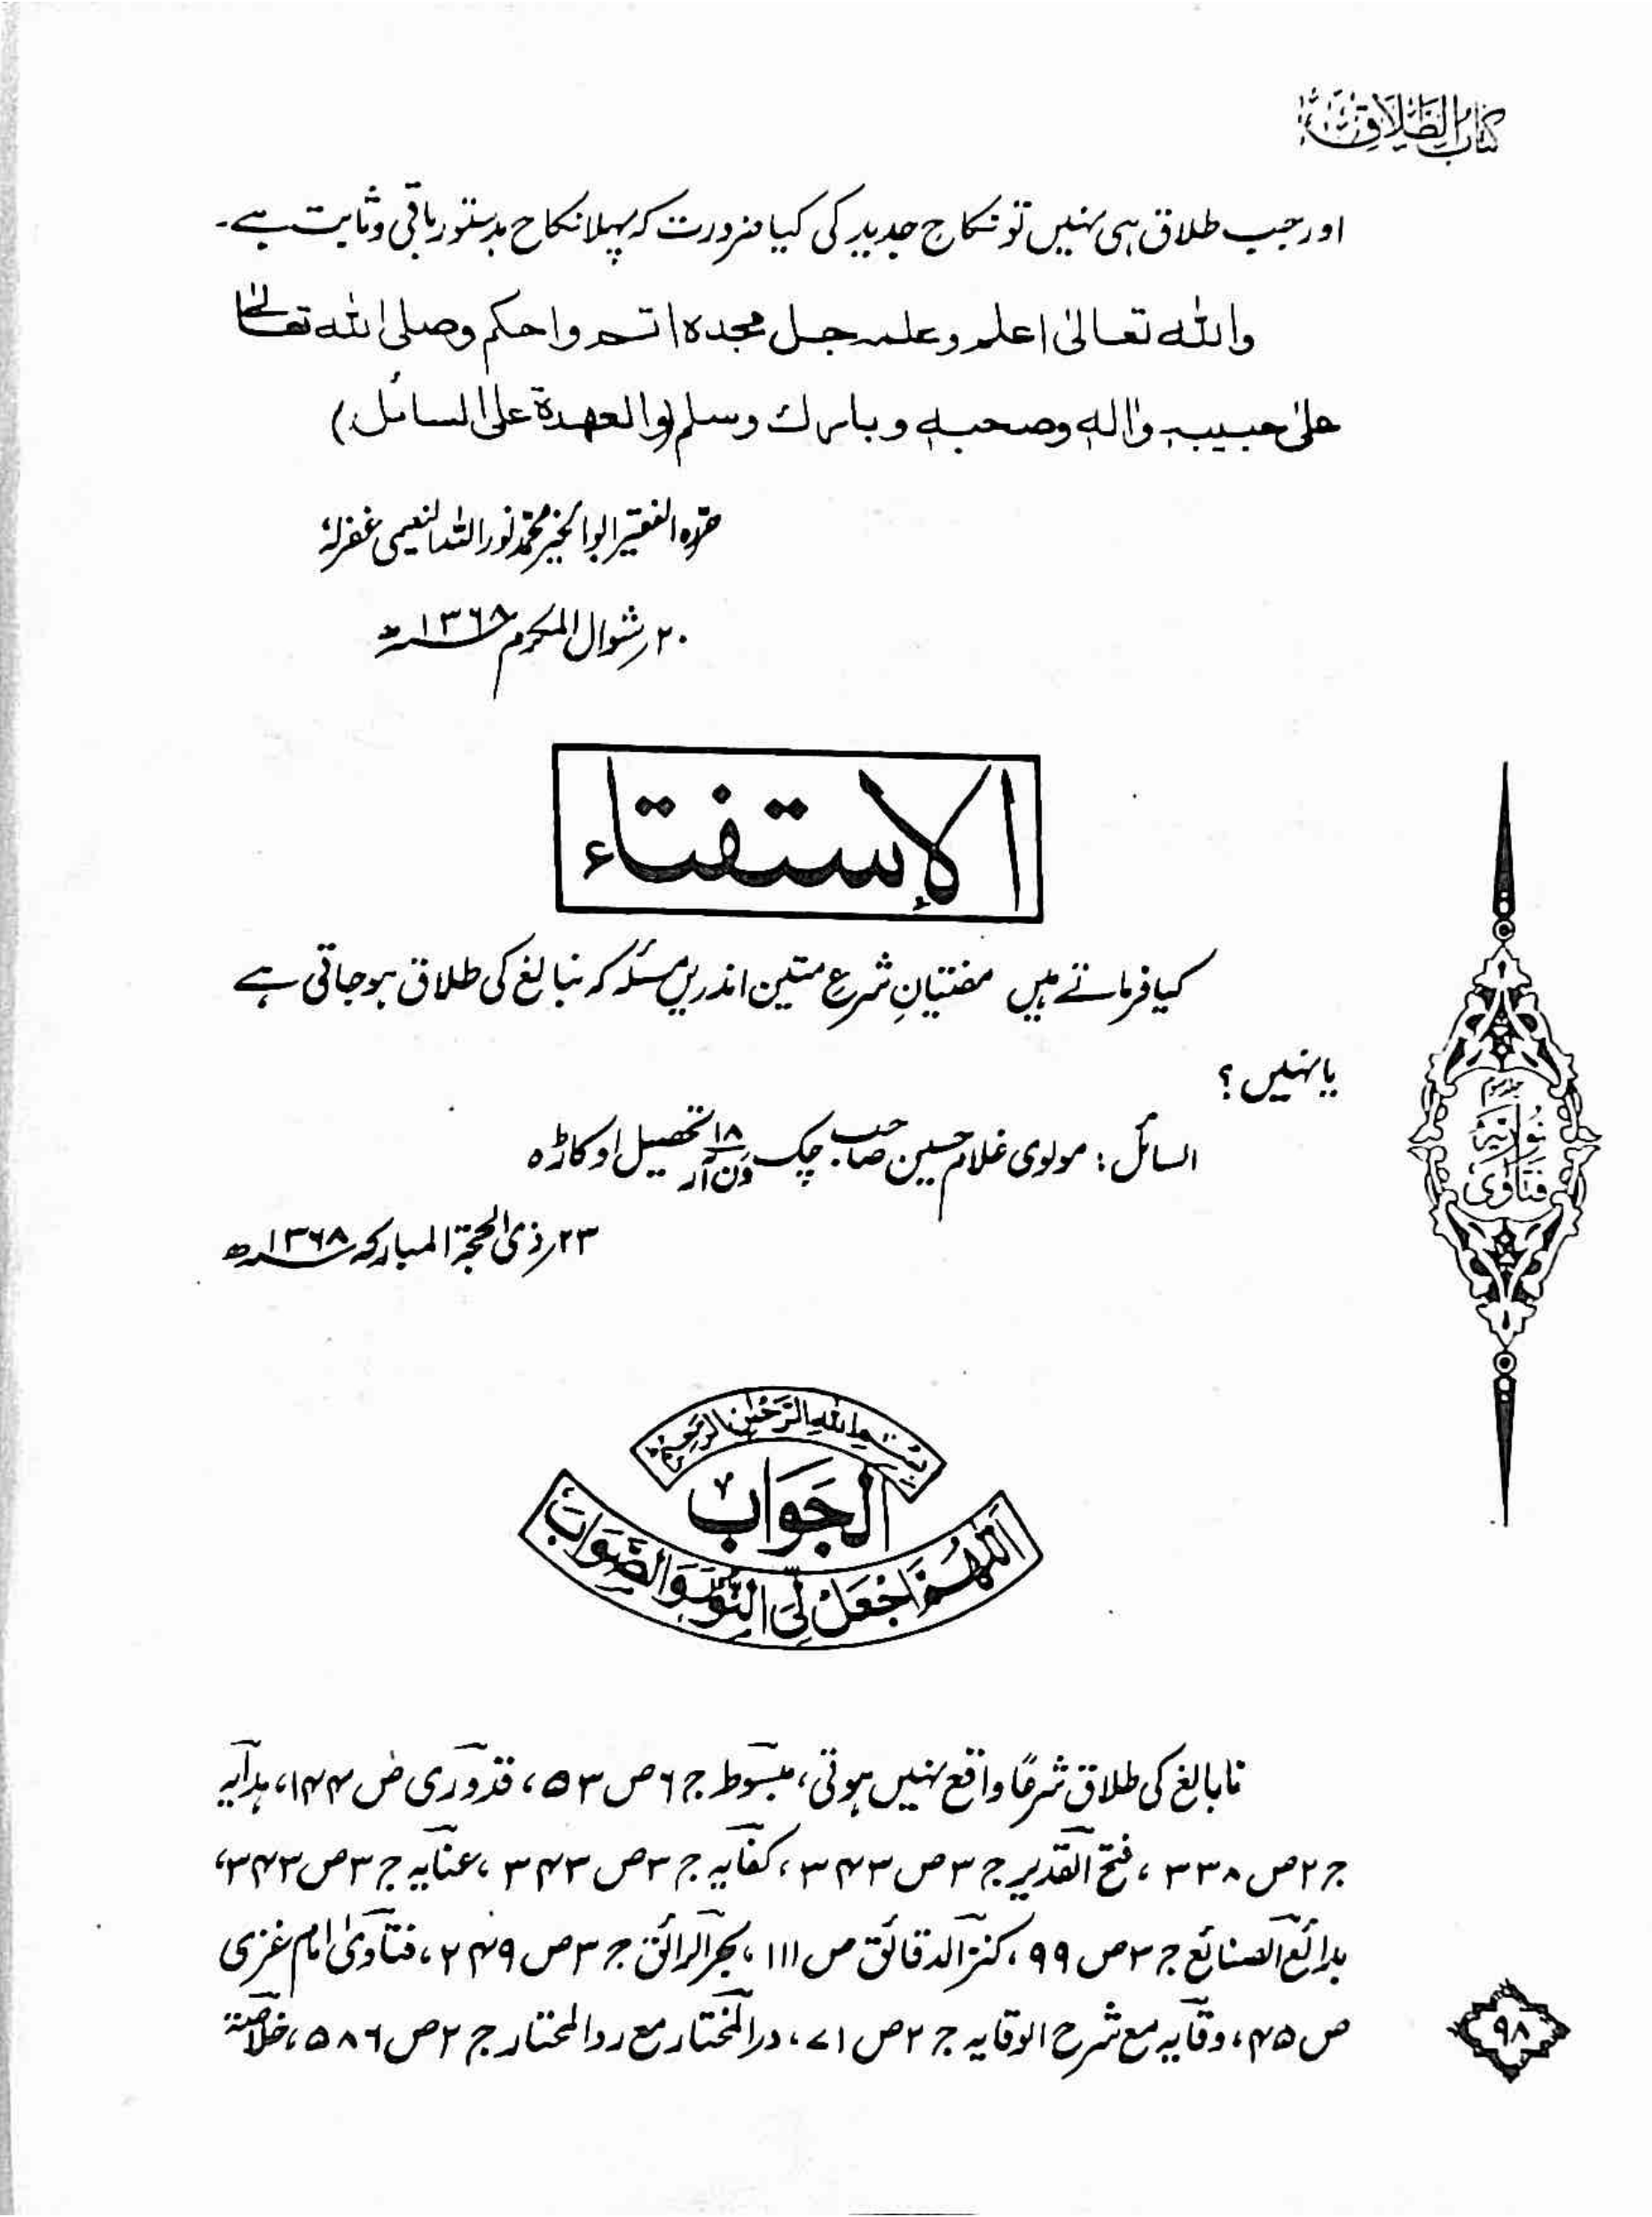 کتاب الطلاق
اور جب طلاق ہی نہیں تو نکاح جدید کی کیا ضرورت کہ پہلا نکاح بدستور باقی و ثابت ہے۔
والله تعالیٰ اعلم وعلمه جل مجدہ اتم واحکم وصلی الله تعالیٰ
علیٰ حبیبہٖ واٰلہٖ وصحبہٖ وبارك وسلم (والعهدة علی السائل)
حرّرہ الفقیر ابوالخیر محمد نور اللہ النعیمی غفرلہٗ
۲۰؍شوال المکرم ۱۳۶۸ھ
الإستفتاء
کیا فرماتے ہیں مفتیانِ شرعِ متین اندریں مسئلہ کہ نابالغ کی طلاق ہو جاتی ہے
یا نہیں ؟
السائل: مولوی غلام حسین صاحب چک ۱۸ ون آر تحصیل اوکاڑہ
۲۳؍ذی الحجۃ المبارکہ ۱۳۶۸ھ
بسم الله الرحمن الرحيم
الجواب
اللهم اجعل لي النور والصواب
نابالغ کی طلاق شرعًا واقع نہیں ہوتی، مبسوط ج ۶ ص ۵۳، قدوری ص ۱۴۴، ہدایہ
ج ۲ ص ۳۳۸، فتح القدیر ج ۳ ص ۳۴۳، کفایہ ج ۳ ص ۳۴۳، عنایہ ج ۳ ص ۳۴۳،
بدائع الصنائع ج ۳ ص ۹۹، کنز الدقائق ص ۱۱۱، بحر الرائق ج ۳ ص ۲۴۹، فتاویٰ امام غزی
ص ۴۵، وقایہ مع شرح الوقایہ ج ۲ ص ۷۱، در المختار مع رد المحتار ج ۲ ص ۵۸۶، خلاصۃ
فتاویٰ نوریہ
۹۸